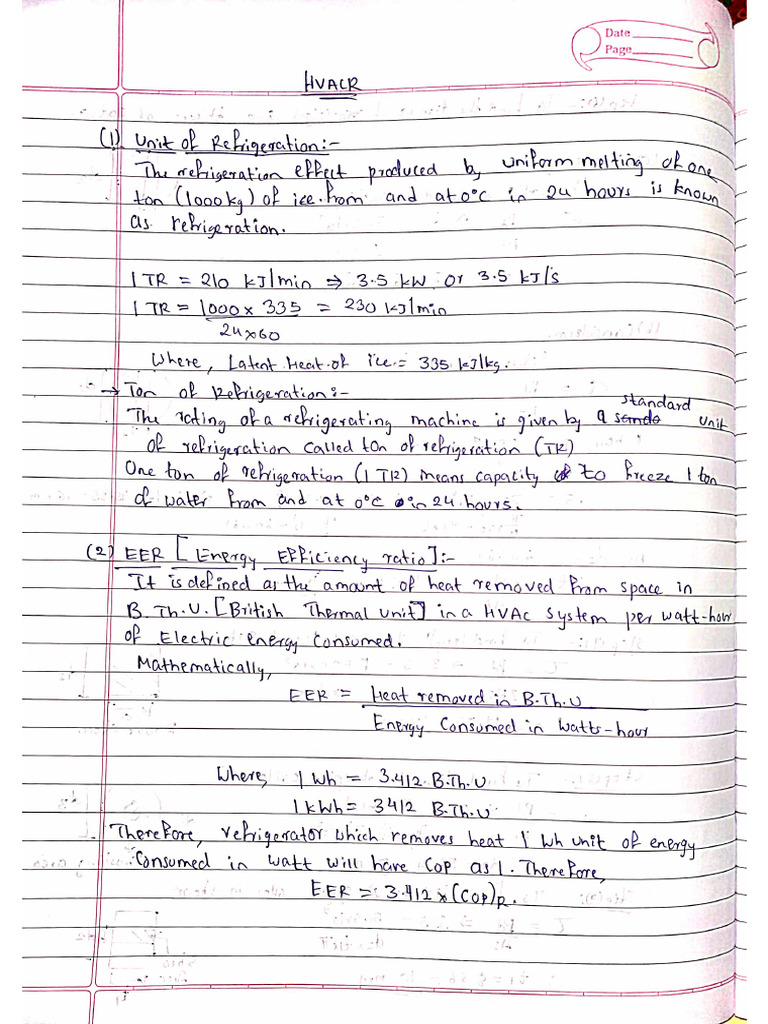 Date
Page
HVACR
(1) Unit of Refrigeration:-
The refrigeration effect produced by uniform melting of one
ton (1000kg) of ice from and at 0°C in 24 hours is known
as refrigeration.
1 TR = 210 kJ/min ⇒ 3.5 kW or 3.5 kJ/s
1 TR = 1000 × 335 = 230 kJ/min
24×60
Where, Latent Heat of ice = 335 kJ/kg.
→ Ton of Refrigeration:-
The rating of a refrigerating machine is given by a standard unit
of refrigeration called ton of refrigeration (TR)
One ton of refrigeration (1 TR) means capacity to freeze 1 ton
of water from and at 0°C in 24 hours.
(2) EER [Energy Efficiency ratio]:-
It is defined as the amount of heat removed from space in
B.Th.U. [British Thermal Unit] in a HVAC system per watt-hour
of Electric energy consumed.
Mathematically,
EER = Heat removed in B.Th.U
Energy Consumed in watts-hour
Where, 1 Wh = 3.412 B.Th.U
1 kWh = 3412 B.Th.U
Therefore, refrigerator which removes heat 1 Wh unit of energy
Consumed in watt will have COP as 1. Therefore,
EER = 3.412 × (COP)R.